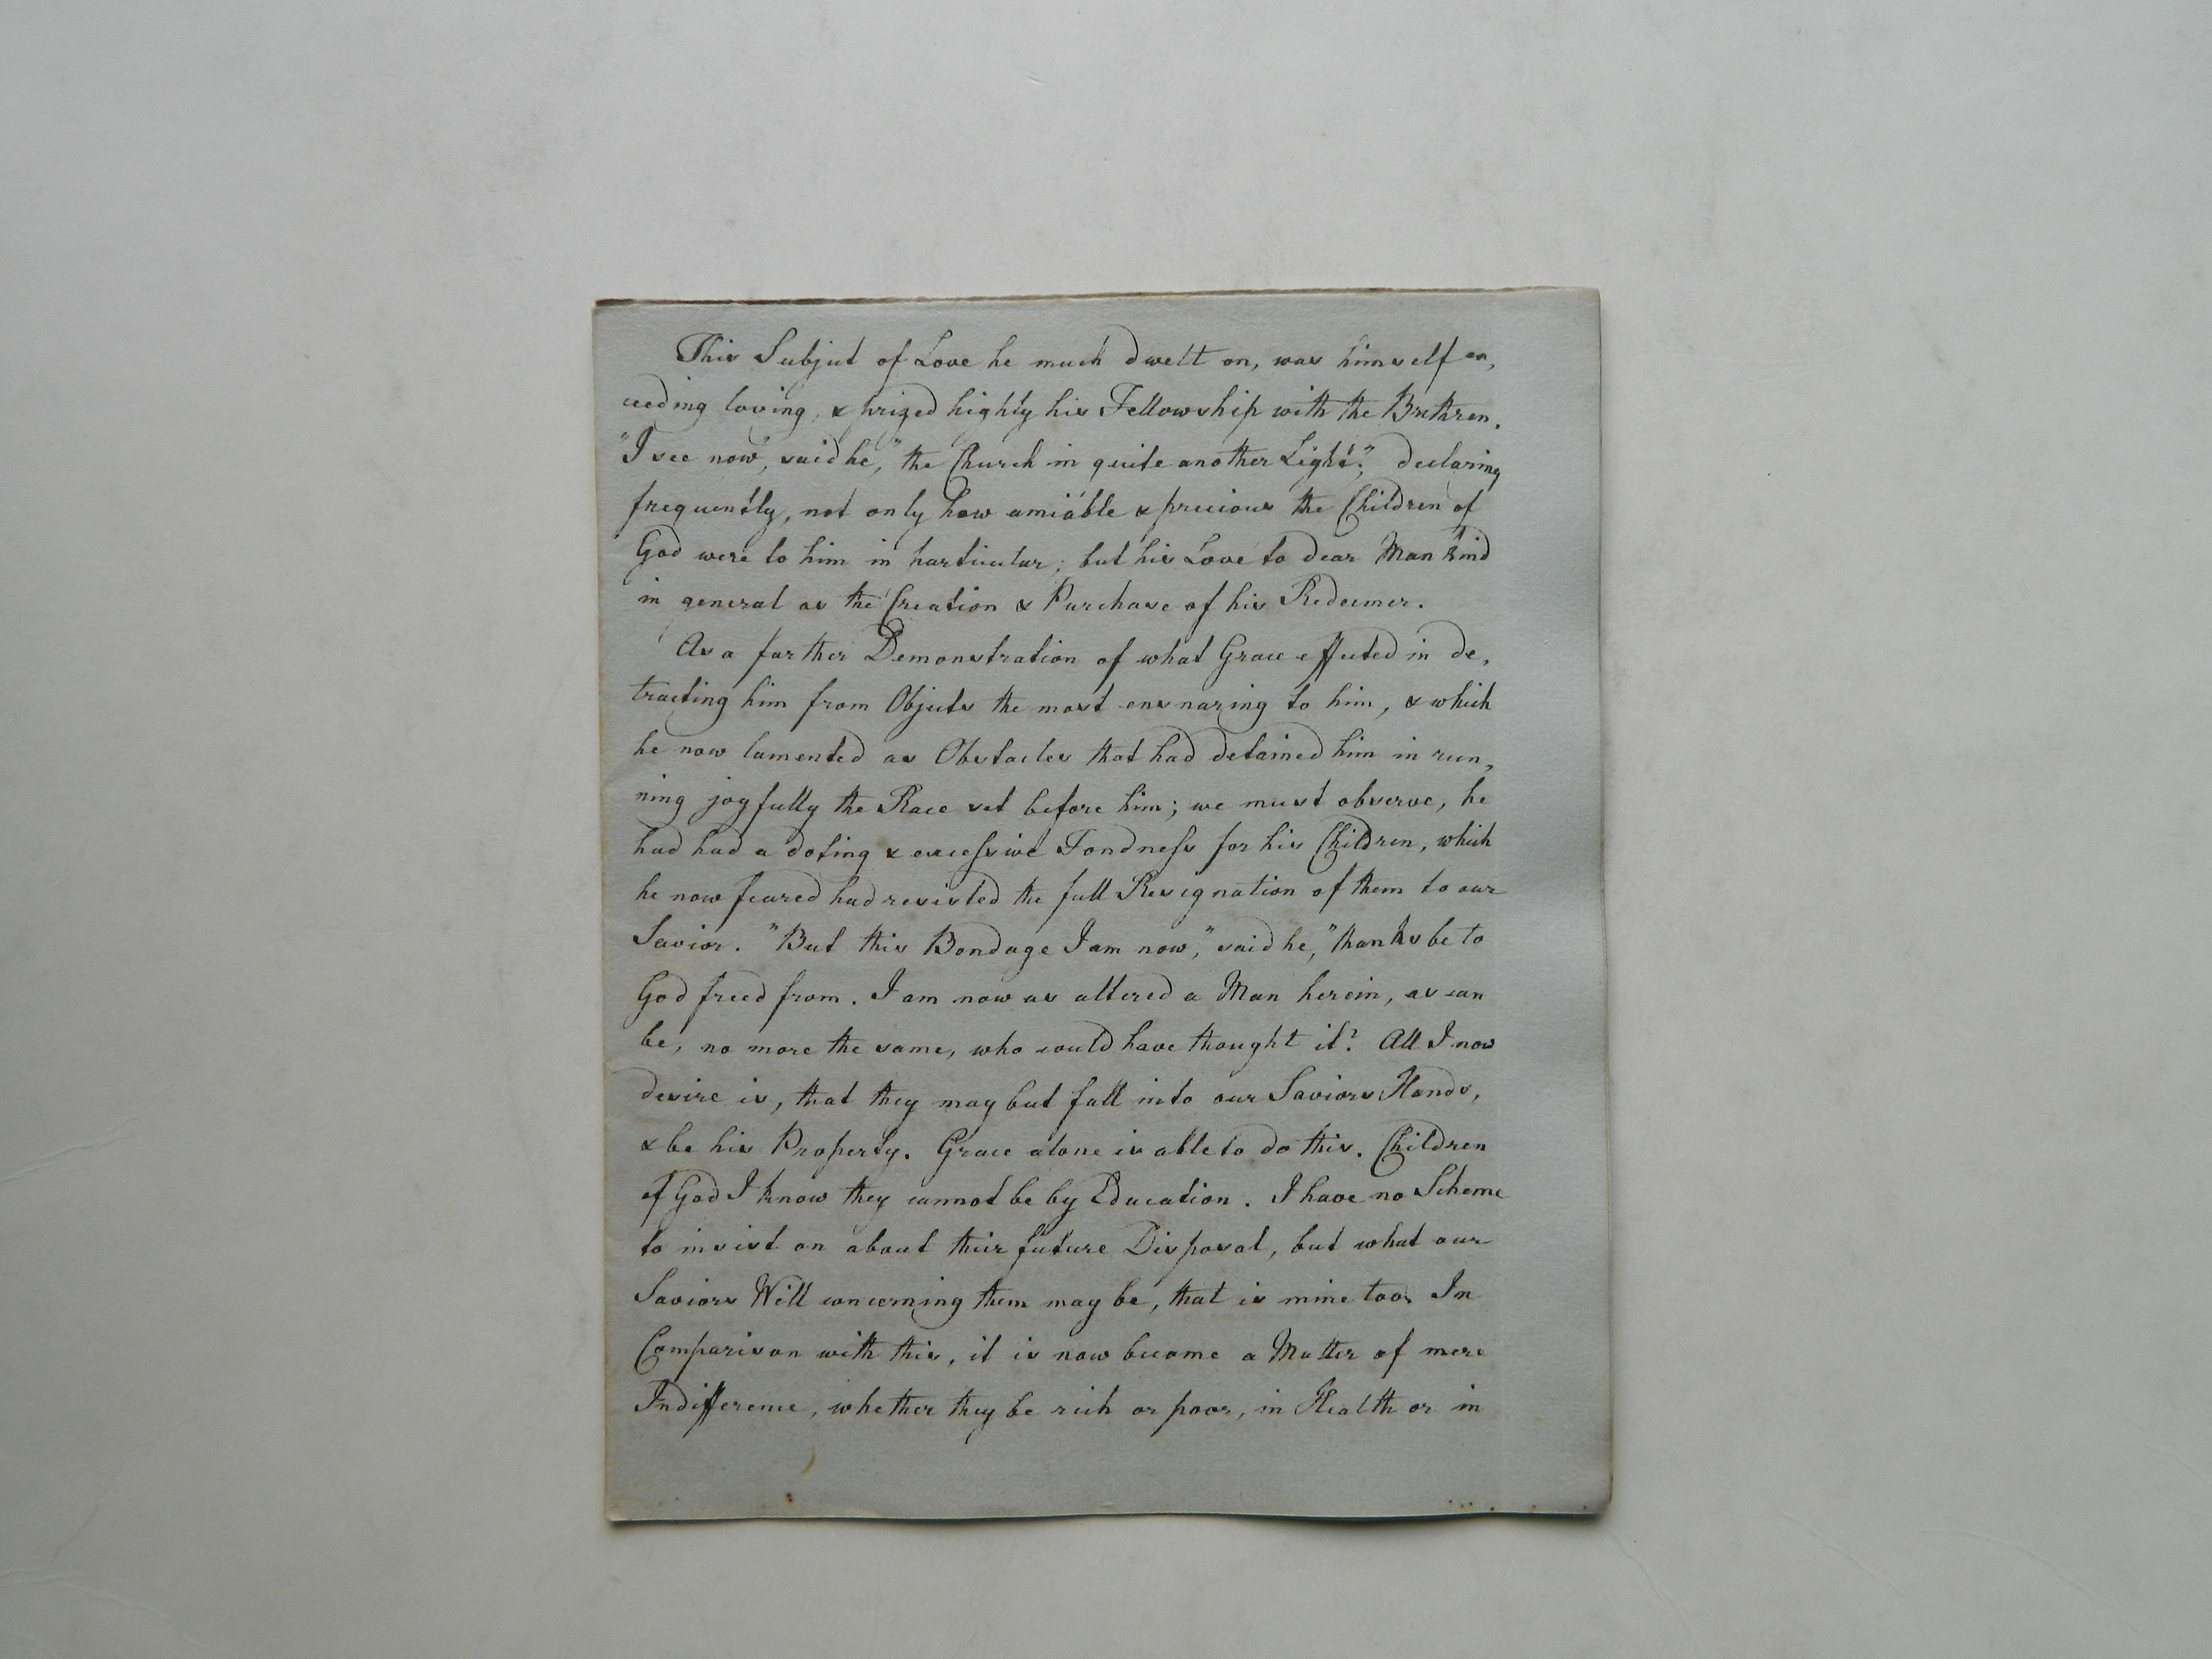 This Subject of Love he much dwelt on, was himself ex,
ceeding loving, & prized highly his Fellowship with the Brethren.
"I see now", said he, "the Church in quite another Light"; declaring
frequently, not only how amiable & precious the Children of
God were to him in particular; but his Love to dear Mankind
in general as the Creation & Purchase of his Redeemer.
As a farther Demonstration of what Grace effected in de,
tracting him from Objects the most ensnaring to him, & which
he now lamented as Obstacles that had detained him in run,
ning joyfully the Race set before him; we must observe, he
had had a doting & excessive Fondness for his Children, which
he now feared had resisted the full Resignation of them to our
Savior. "But this Bondage I am now," said he, "thanks be to
God freed from. I am now as altered a Man herein, as can
be, no more the same, who could have thought it? All I now
desire is, that they may but fall into our Saviors Hands,
& be his Property. Grace alone is able to do this. Children
of God I know they cannot be by Education. I have no Scheme
to insist on about their future Disposal, but what our
Saviors Will concerning them may be, that is mine too. In
Comparison with this, it is now become a Matter of mere
Indifference, whether they be rich or poor, in Health or in